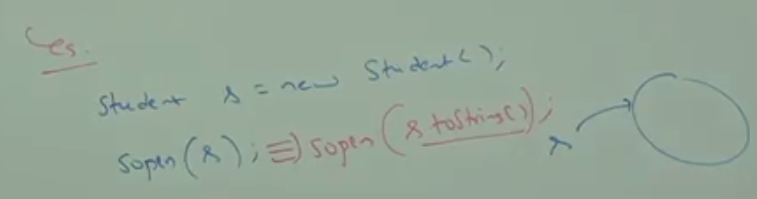 Yes.
Student s = new Student();
Sopln(s); ≡) Sopln(s toString());
s